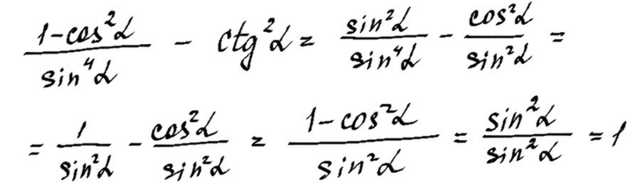 (1-cos²α)/(sin⁴α) - ctg²α = (sin²α)/(sin⁴α) - (cos²α)/(sin²α) =
= 1/(sin²α) - (cos²α)/(sin²α) = (1-cos²α)/(sin²α) = (sin²α)/(sin²α) = 1